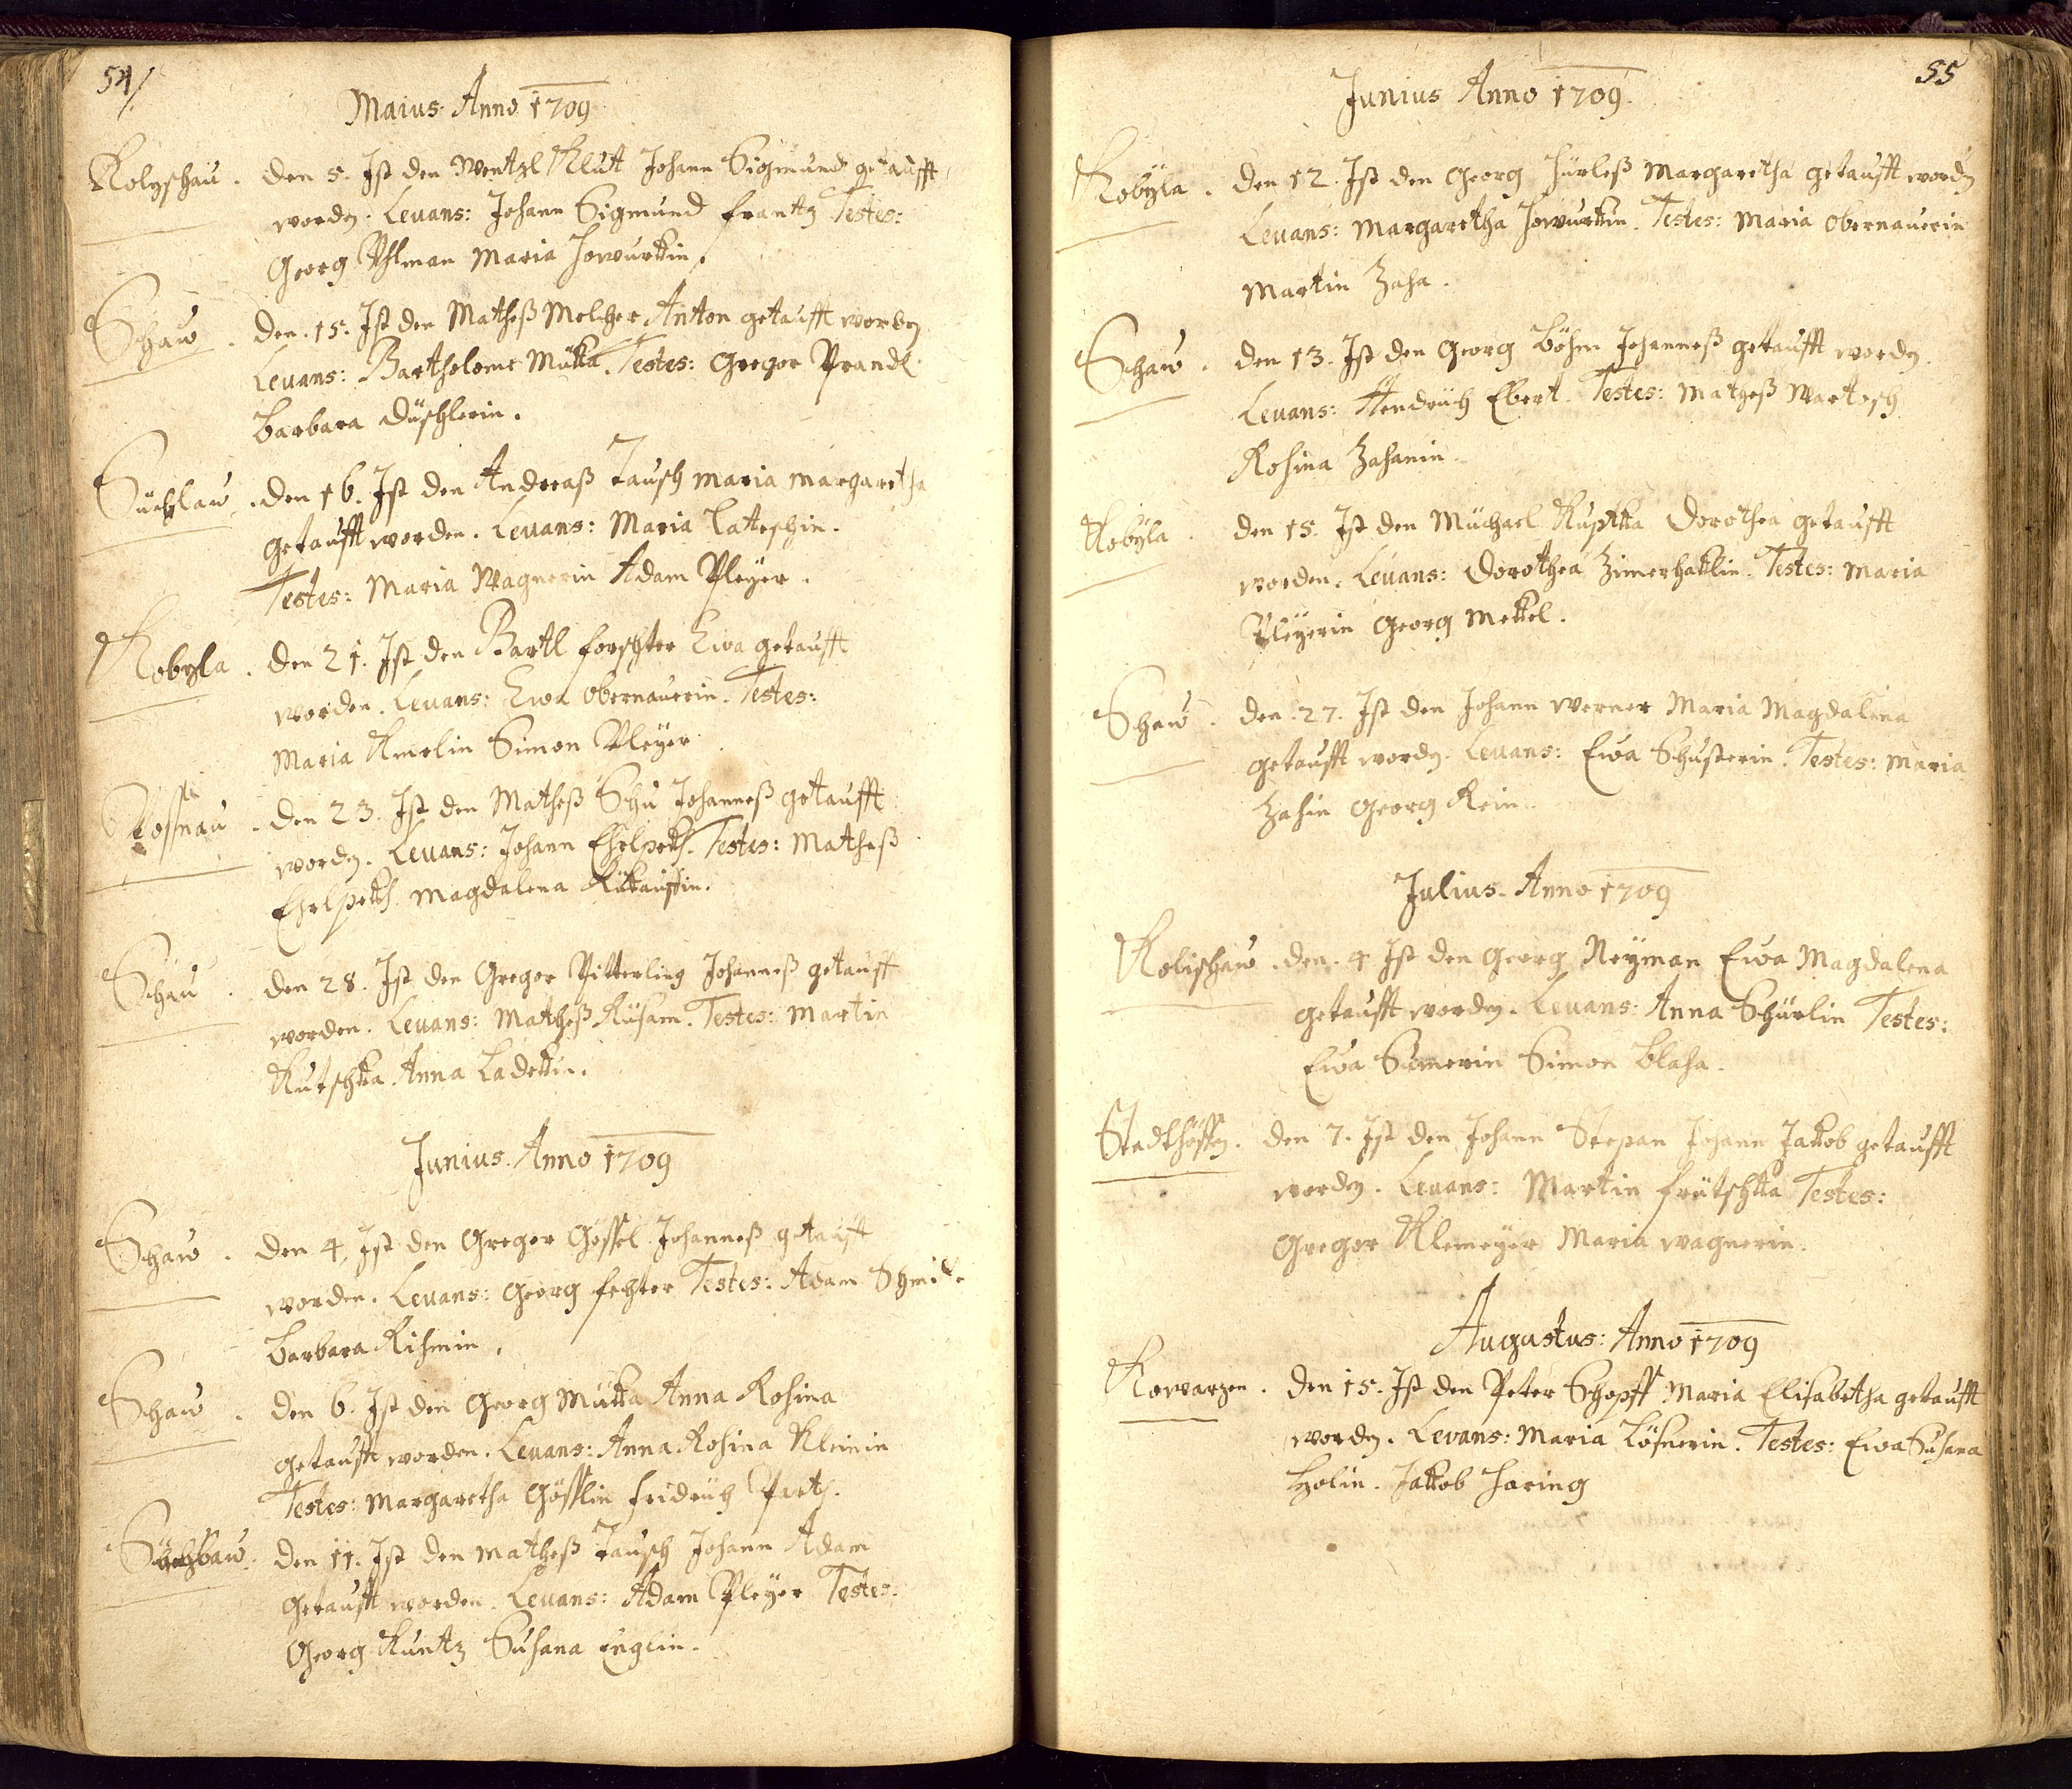 54/
Maius Anno 1709
Kolyschau. den 5. Ist den Wentzl Klut Johann Sigmund getaufft
worden. Leuans: Johann Sigmund Frantz Testes:
Georg Uhlman Maria Howurkin.
Schaw. den 15. Ist den Matheß Melcher Anton getaufft worden
Leuans: Bartholome Mukka. Testes: Gregor Prandl
Barbara Düschlerin.
den 16. Ist den Andreaß Tausch Maria Margaretha
getaufft worden. Leuans: Maria
Testes: Maria Wagnerin Adam Pleyer.
Kobyla. den 21. Ist den Bartl Forschter Ewa getaufft
worden. Leuans: Ewa Obernauerin. Testes:
Maria Simon Pleyer
Kossnau. den 23. Ist den Matheß Schu Johanneß getaufft
worden. Leuans: Johann Testes: Matheß
Magdalena
Schau. den 28. Ist den Gregor Pitterling Johanneß getaufft
worden. Leuans: Matheß Testes: Martin
Kutschka Anna Ladekin.
Junius Anno 1709
Schaw. den 4. Ist den Gregor Gössel Johanneß getaufft
worden. Leuans: Georg Fechter Testes: Adam
Barbara
Schaw. den 6. Ist den Georg Mukka Anna Rosina
getaufft worden. Leuans: Anna Rosina Kleinin
Testes: Margaretha Gösslin Fridrich
den 11. Ist den Matheß Tausch Johann Adam
getaufft worden. Leuans: Adam Pleyer Testes:
Georg Kuntz Susana Englin.
55
Junius Anno 1709.
Kobyla. den 12. Ist den Georg Margaretha getaufft worden
Leuans: Margaretha Howurkin. Testes: Maria Obernauerin
Martin Zaha.
Schaw. den 13. Ist den Georg Böhm Johanneß getaufft worden.
Leuans: Hendrich Ebert. Testes: Matheß Wartosch
Rosina Zahanin
Kobyla. den 15. Ist den Michael Kupkka Dorothea getaufft
worden. Leuans: Dorothea Zimerhaklin. Testes: Maria
Pleyerin Georg Mekkel.
Schaw. den 27. Ist den Johann Werner Maria Magdalena
getaufft worden. Leuans: Ewa Schusterin. Testes: Maria
Zahin Georg Kein.
Julius Anno 1709
Kolischaw. den 4. Ist den Georg Neyman Ewa Magdalena
getaufft worden. Leuans: Anna Schürlin Testes:
Ewa Sumerin Simon Blaha.
Stadthöffen. den 7. Ist den Johann Stepan Johann Jakob getaufft
worden. Leuans: Martin Frütschka Testes:
Gregor Klemeyer Maria Wagnerin.
Augustus: Anno 1709
Kowarzen. den 15. Ist den Peter Schopff Maria Elisabetha getaufft
worden. Levans: Maria Lösnerin. Testes: Ewa Susana
Holin. Jakob Haring